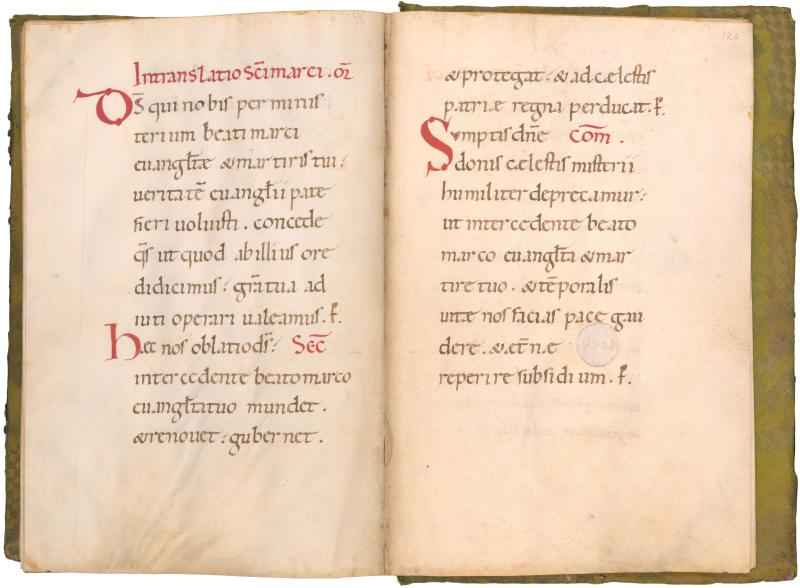 Intranslatio Sc̄i marci. or̄
DS̄ qui nobis per minis
terium beati marci
euangl̄tæ & martiris tui:
ueritatē euangl̄ii pate
fieri uoluisti. concede
q̄s ut quod ab illius ore
didicimus: gr̄a tua ad
iuti operari ualeamus. P̄.
hæc nos oblatio dS̄: Sec̄
intercedente beato marco
euangl̄ta tuo mundet.
& renouet: gubernet.
120
& protegat. & ad cælestis
patriæ regna perducat. P̄.
Sumptis dn̄e Com̄.
donis cælestis misterii
humiliter deprecamur:
ut intercedente beato
marco euangl̄ta & mar
tire tuo. & tēporalis
uitæ nos facias pace gau
dere. & &n̄æ
reperire subsidium. P̄.